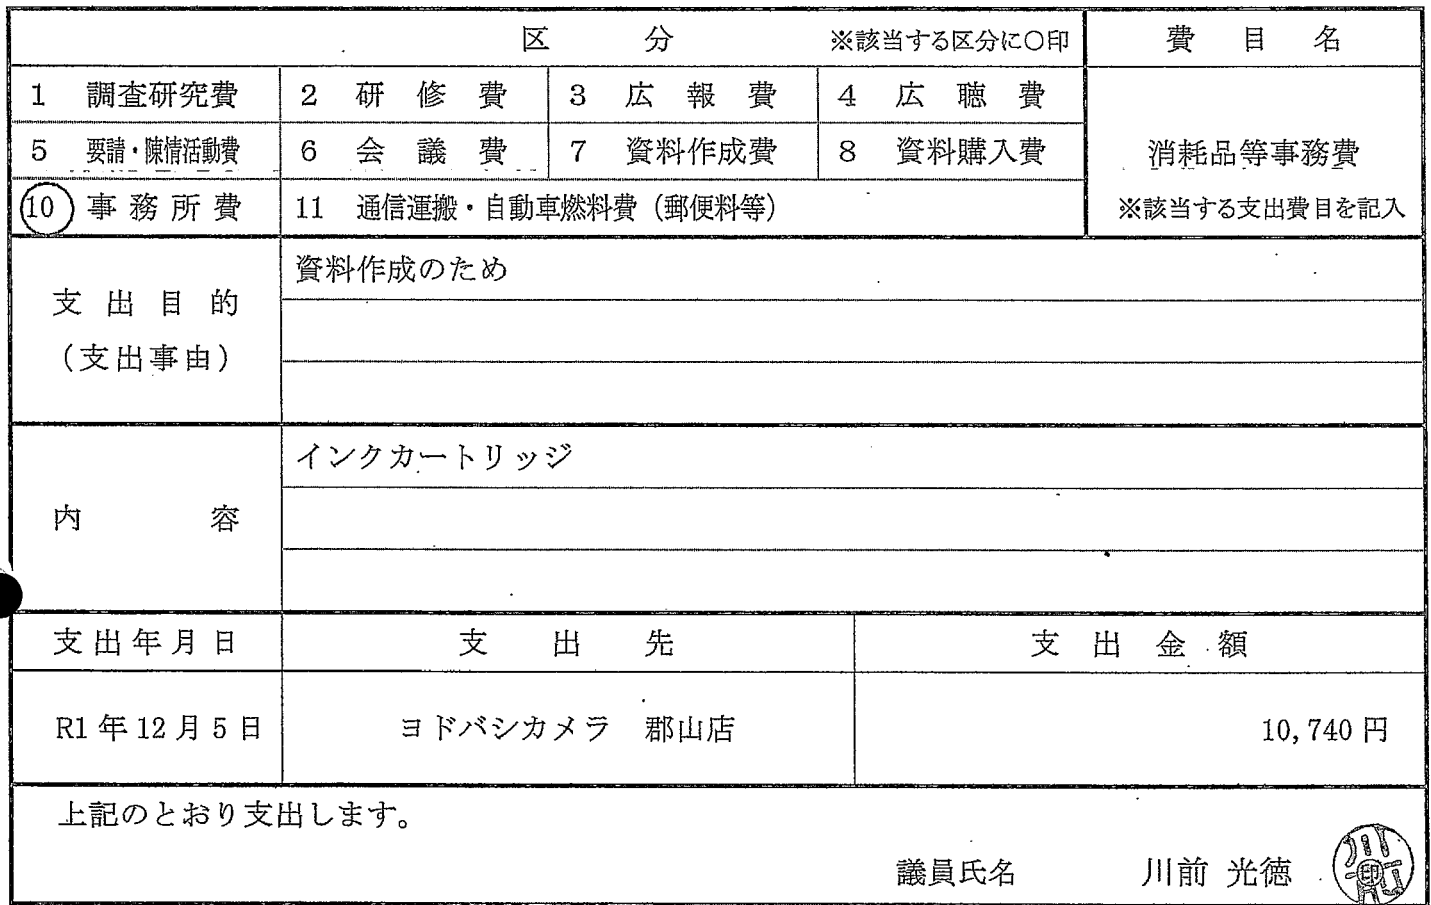 区 分 ※該当する区分に○印 費 目 名
1 調査研究費 2 研 修 費 3 広 報 費 4 広 聴 費
5 要請・陳情活動費 6 会 議 費 7 資料作成費 8 資料購入費 消耗品等事務費
10 事 務 所 費 11 通信運搬・自動車燃料費（郵便料等） ※該当する支出費目を記入
資料作成のため
支 出 目 的
（支出事由）
インクカートリッジ
内 容
支出年月日 支 出 先 支 出 金 額
R1 年 12 月 5 日 ヨドバシカメラ 郡山店 10,740 円
上記のとおり支出します。
議員氏名 川前 光徳 印